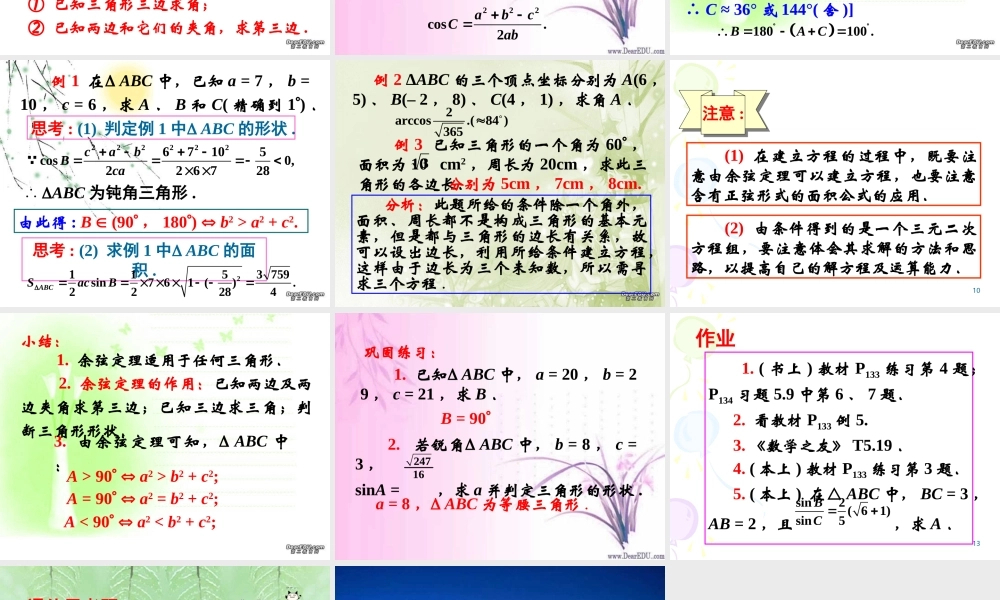 ① 已知三角形三边求角;
② 已知两边和它们的夹角，求第三边 .
cos C = (a² + b² - c²) / 2ab .
www.DearEDU.com
∴ C ≈ 36° 或 144°( 舍 )]
∴ B = 180° - (A + C) = 100° .
例 1 在Δ ABC 中，已知 a = 7 ， b =
10 ， c = 6 ，求 A 、 B 和 C( 精确到 1°) ．
思考 : (1) 判定例 1 中Δ ABC 的形状 .
∵ cos B = (c² + a² - b²) / 2ca = (6² + 7² - 10²) / (2×6×7) = - 5/28 < 0,
∴ ΔABC 为钝角三角形 .
由此得 : B ∈ (90° ， 180°) ⇔ b² > a² + c².
思考 : (2) 求例 1 中Δ ABC 的面
积 .
S△ABC = 1/2 ac sin B = 1/2 × 7 × 6 × √(1 - (-5/28)²) = 3√759 / 4 .
例 2 ΔABC 的三个顶点坐标分别为 A(6 ，
5) 、 B(– 2 ， 8) 、 C(4 ， 1) ，求角 A ．
arccos 2/√365 .(≈84°)
例 3 已知三角形的一个角为 60° ，
面积为 10√3 cm² ，周长为 20cm ，求此三
角形的各边长．
分别为 5cm ， 7cm ， 8cm.
分析：此题所给的条件除一个角外，
面积、周长都不是构成三角形的基本元
素，但是都与三角形的边长有关系，故
可以设出边长，利用所给条件建立方程，
这样由于边长为三个未知数，所以需寻
求三个方程．
注意 :
(1) 在建立方程的过程中，既要注
意由余弦定理可以建立方程，也要注意
含有正弦形式的面积公式的应用．
(2) 由条件得到的是一个三元二次
方程组，要注意体会其求解的方法和思
路，以提高自己的解方程及运算能力．
10
小结：
1. 余弦定理适用于任何三角形．
2. 余弦定理的作用：已知两边及两
边夹角求第三边；已知三边求三角；判
断三角形形状．
3. 由余弦定理可知， Δ ABC 中
：
A > 90° ⇔ a² > b² + c²;
A = 90° ⇔ a² = b² + c²;
A < 90° ⇔ a² < b² + c²;
巩固练习：
1. 已知Δ ABC 中， a = 20 ， b = 2
9 ， c = 21 ，求 B ．
B = 90°
2. 若锐角Δ ABC 中， b = 8 ， c =
3 ，
sinA = √247/16 ，求 a 并判定三角形的形状．
a = 8 ，Δ ABC 为等腰三角形．
www.DearEDU.com
作业
1. ( 书上 ) 教材 P133 练习第 4 题；
P134 习题 5.9 中第 6 、 7 题．
2. 看教材 P133 例 5.
3. 《数学之友》 T5.19 ．
4. ( 本上 ) 教材 P133 练习第 3 题．
5. ( 本上 ) 在△ ABC 中， BC = 3 ，
AB = 2 ，且 sin B / sin C = 2/5 (√6 + 1) ，求 A ．
13